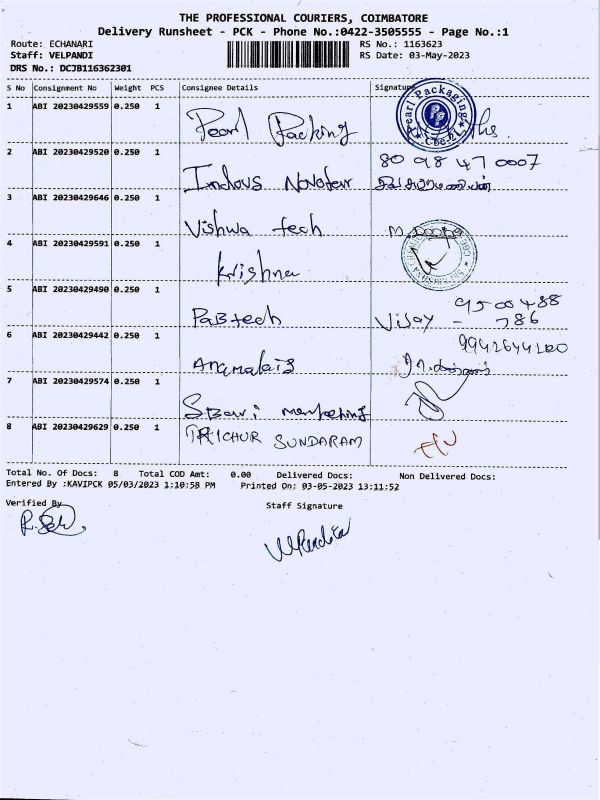 THE PROFESSIONAL COURIERS, COIMBATORE
Delivery Runsheet - PCK - Phone No.:0422-3505555 - Page No.:1
Route: ECHANARI
RS No.: 1163623
Staff: VELPANDI
RS Date: 03-May-2023
DRS No.: DCJB116362301
S No Consignment No Weight PCS Consignee Details Signature
1 ABI 20230429559 0.250 1
Pearl Packing
Pearl Packaging
2 ABI 20230429520 0.250 1
80 98 47 0007
Indous Novateur
3 ABI 20230429646 0.250 1
Vishwa tech
4 ABI 20230429591 0.250 1
Krishna
5 ABI 20230429490 0.250 1
9500488
Pabtech Vijay - 786
6 ABI 20230429442 0.250 1
Anamalais
7 ABI 20230429574 0.250 1
8 ABI 20230429629 0.250 1
TRICHUR SUNDARAM
Total No. Of Docs: 8 Total COD Amt: 0.00 Delivered Docs: Non Delivered Docs:
Entered By :KAVIPCK 05/03/2023 1:10:58 PM Printed On: 03-05-2023 13:11:52
Verified By
Staff Signature